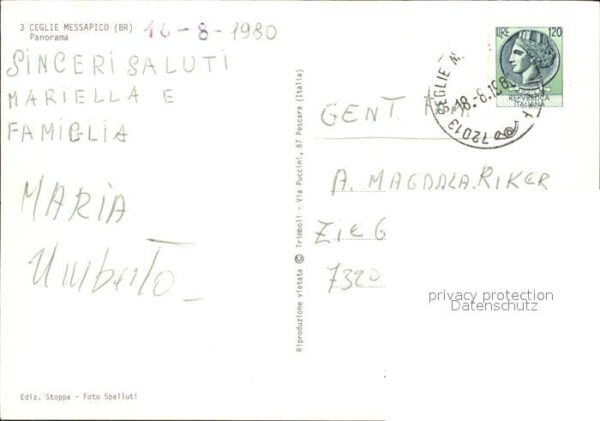 3 CEGLIE MESSAPICO (BR)
Panorama
16-8-1980
SINCERI SALUTI
MARIELLA E
FAMIGLIA
MARIA
Umberto
Ediz. Stoppa - Foto Spalluti
Riproduzione vietata © Trimboli - Via Puccini, 67 Pescara (Italia)
LIRE 120
REPUBBLICA
ITALIANA
72013 CEGLIE M
18-8-198
GENT.
A. MAGDALA.RIKER
ZIEG
7320
privacy protection
Datenschutz